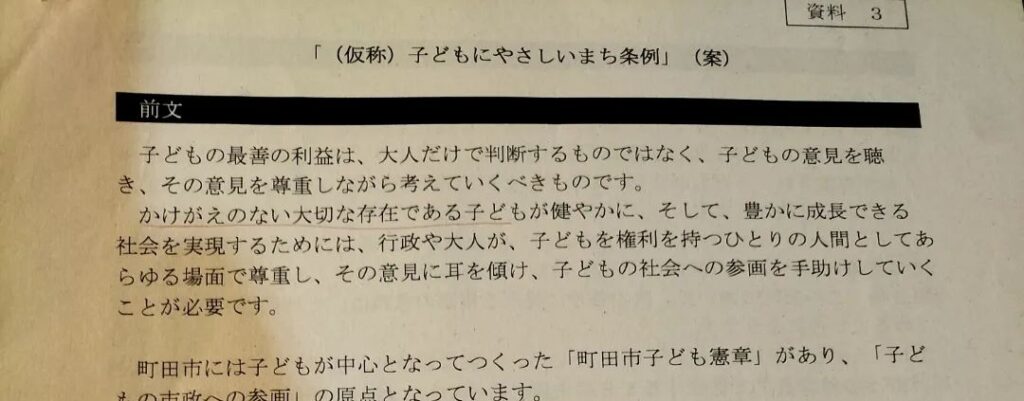 資料 3
「(仮称)子どもにやさしいまち条例」(案)
前文
子どもの最善の利益は、大人だけで判断するものではなく、子どもの意見を聴
き、その意見を尊重しながら考えていくべきものです。
かけがえのない大切な存在である子どもが健やかに、そして、豊かに成長できる
社会を実現するためには、行政や大人が、子どもを権利を持つひとりの人間としてあ
らゆる場面で尊重し、その意見に耳を傾け、子どもの社会への参画を手助けしていく
ことが必要です。
町田市には子どもが中心となってつくった「町田市子ども憲章」があり、「子ど
もの市政への参画」の原点となっています。